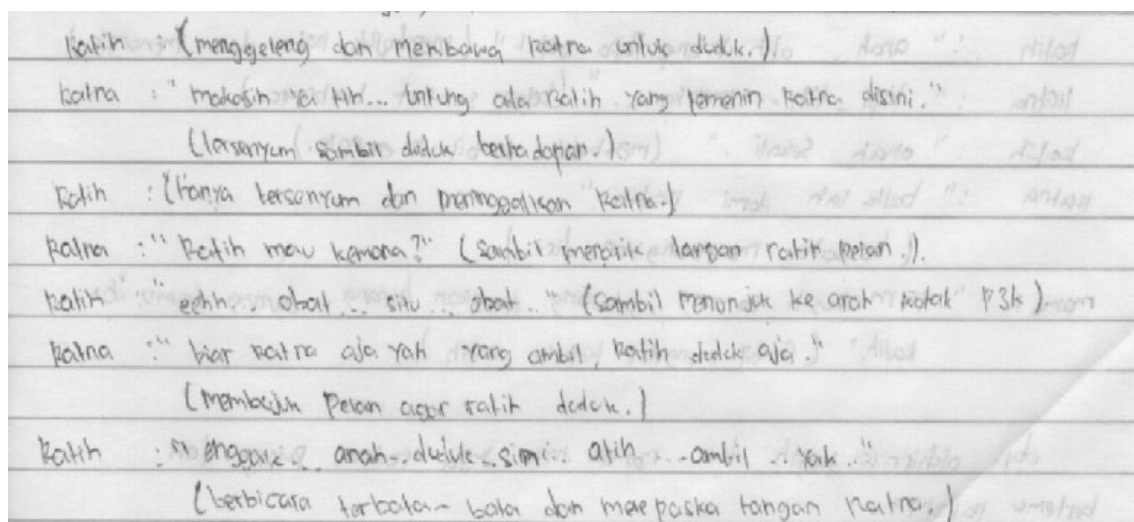 Ratih : (menggeleng dan membawa Ratna untuk duduk.).
Ratna : "makasih ya tih... untung ada Ratih yang temenin Ratna disini."
(tersenyum sambil duduk berhadapan.)
Ratih : (hanya tersenyum dan meninggalkan Ratna.)
Ratna : "Ratih mau kemana?" (sambil menarik tangan ratih pelan.).
Ratih : "eehh... obat... situ... obat.." (sambil menunjuk ke arah kotak P3k)
Ratna : "biar Ratna aja yah yang ambil, Ratih duduk aja."
(membujuk pelan agar ratih duduk.)
Ratih : "enggak... anah.. duduk.. sini.. atih... ambil.. yah.."
(berbicara terbata-bata dan melepaska tangan Ratna.)